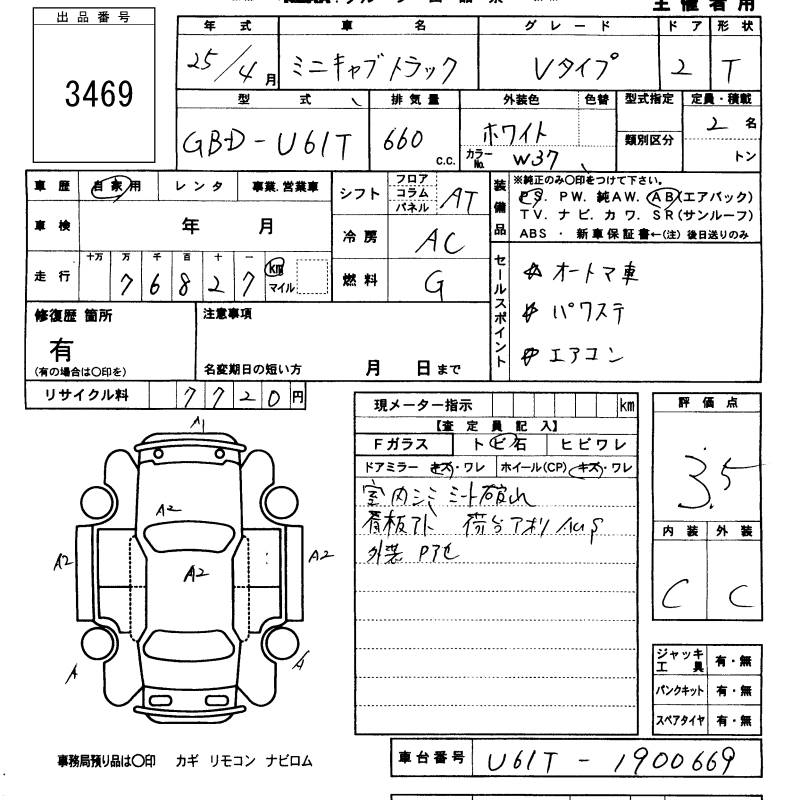 主催者用
出品番号
3469
年式 車名 グレード ドア 形状
25/4月 ミニキャブトラック Vタイプ 2 T
型式 排気量 外装色 色替 型式指定 定員・積載
GBD-U61T 660 c.c. ホワイト 類別区分 2名
カラーNo. W37 トン
車歴 自家用 レンタ 事業.営業車
シフト フロア コラム パネル AT
装備品
※純正のみ○印をつけて下さい。
PS. PW. 純AW. AB(エアバック)
TV. ナビ. カワ. SR(サンルーフ)
ABS ・ 新車保証書←(注) 後日送りのみ
車検 年 月
冷房 AC
走行 十万 万 千 百 十 一
76827 km マイル
燃料 G
セールスポイント
☆ オートマ車
☆ パワステ
☆ エアコン
修復歴 箇所
有
(有の場合は○印を)
注意事項
名変期日の短い方 月 日まで
リサイクル料 7720円
現メーター指示 km
【査定員記入】
Fガラス トビ石 ヒビワレ
ドアミラー キズ・ワレ ホイール(CP) キズ・ワレ
室内シミ シート
看板アト 荷台アオリ
外装
評価点
3.5
内装 外装
C C
A1
A2
A2
A2 A2
A A
ジャッキ工具 有・無
パンクキット 有・無
スペアタイヤ 有・無
事務局預り品は○印 カギ リモコン ナビロム
車台番号 U61T - 1900669